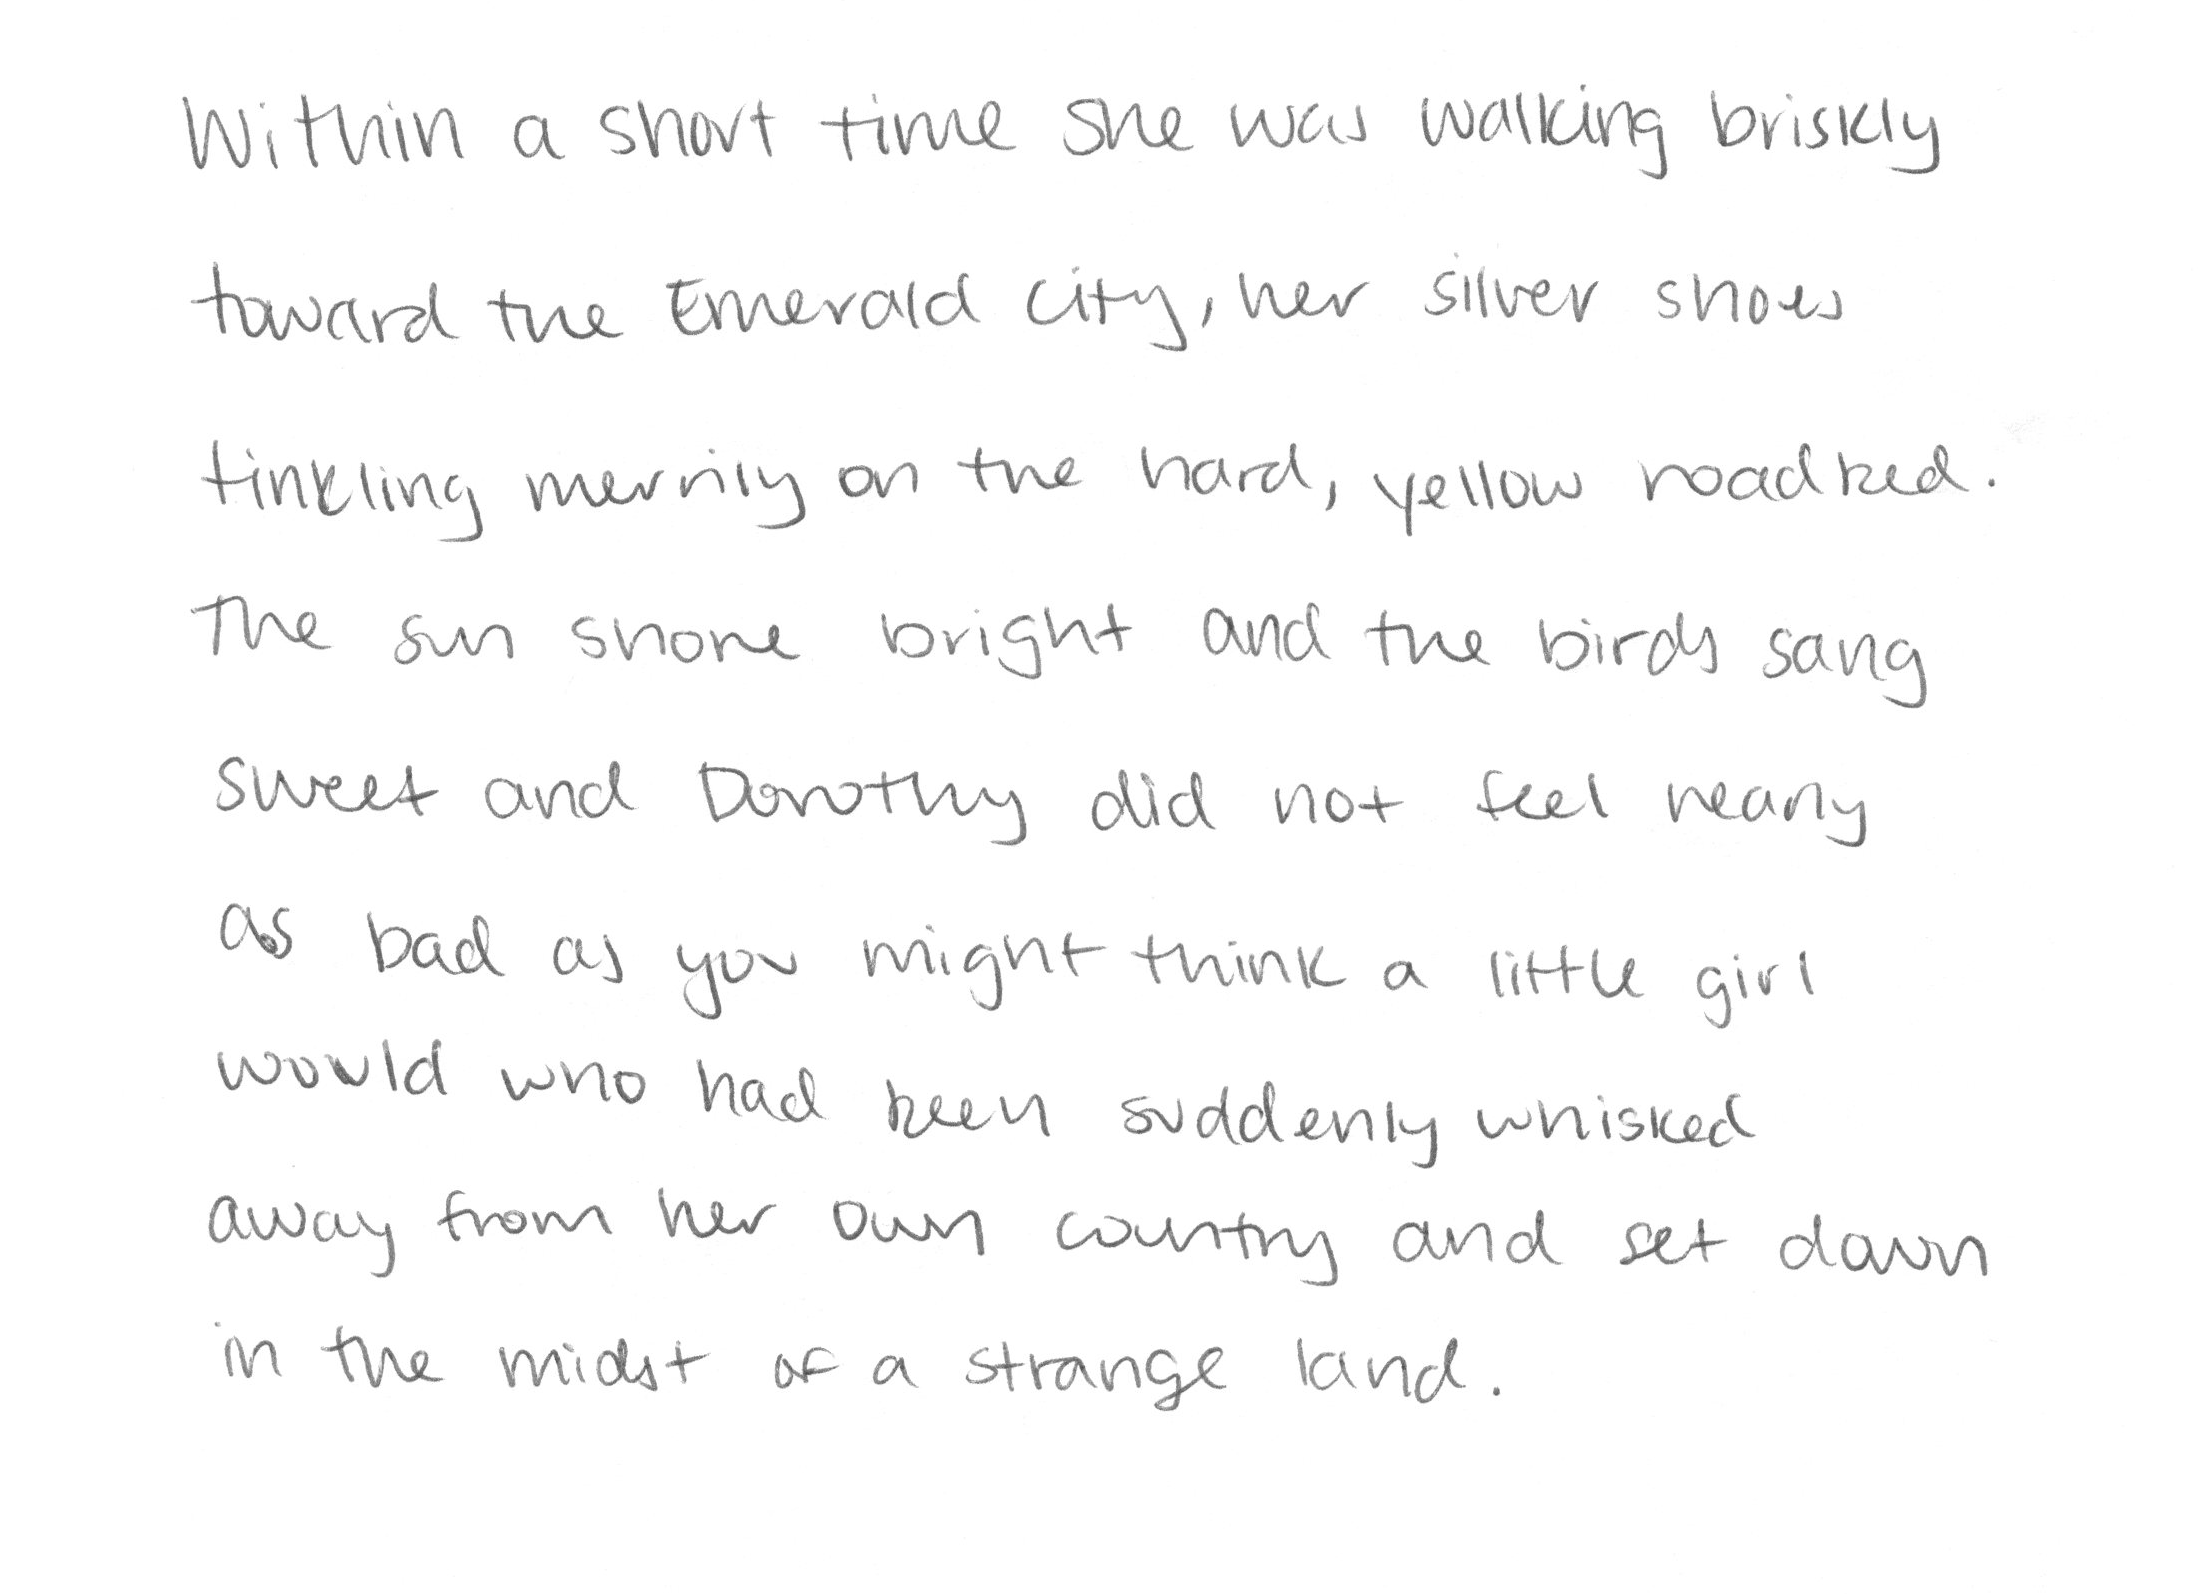 Within a short time she was walking briskly
toward the Emerald City, her silver shoes
tinkling merrily on the hard, yellow roadbed.
The sun shone bright and the birds sang
sweet and Dorothy did not feel nearly
as bad as you might think a little girl
would who had been suddenly whisked
away from her own country and set down
in the midst of a strange land.